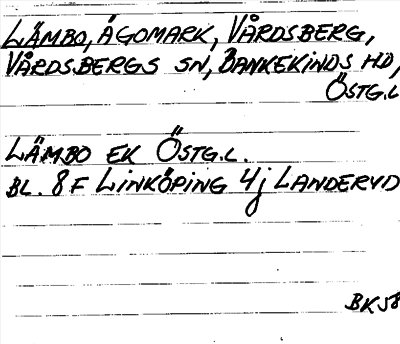 LÄMBO, ÄGOMARK, VÅRDSBERG,
VÅRDSBERGS SN, BANKEKINDS HD,
ÖSTG.L
LÄMBO EK ÖSTG.L.
BL. 8F LINKÖPING 4j LANDERYD
BK58